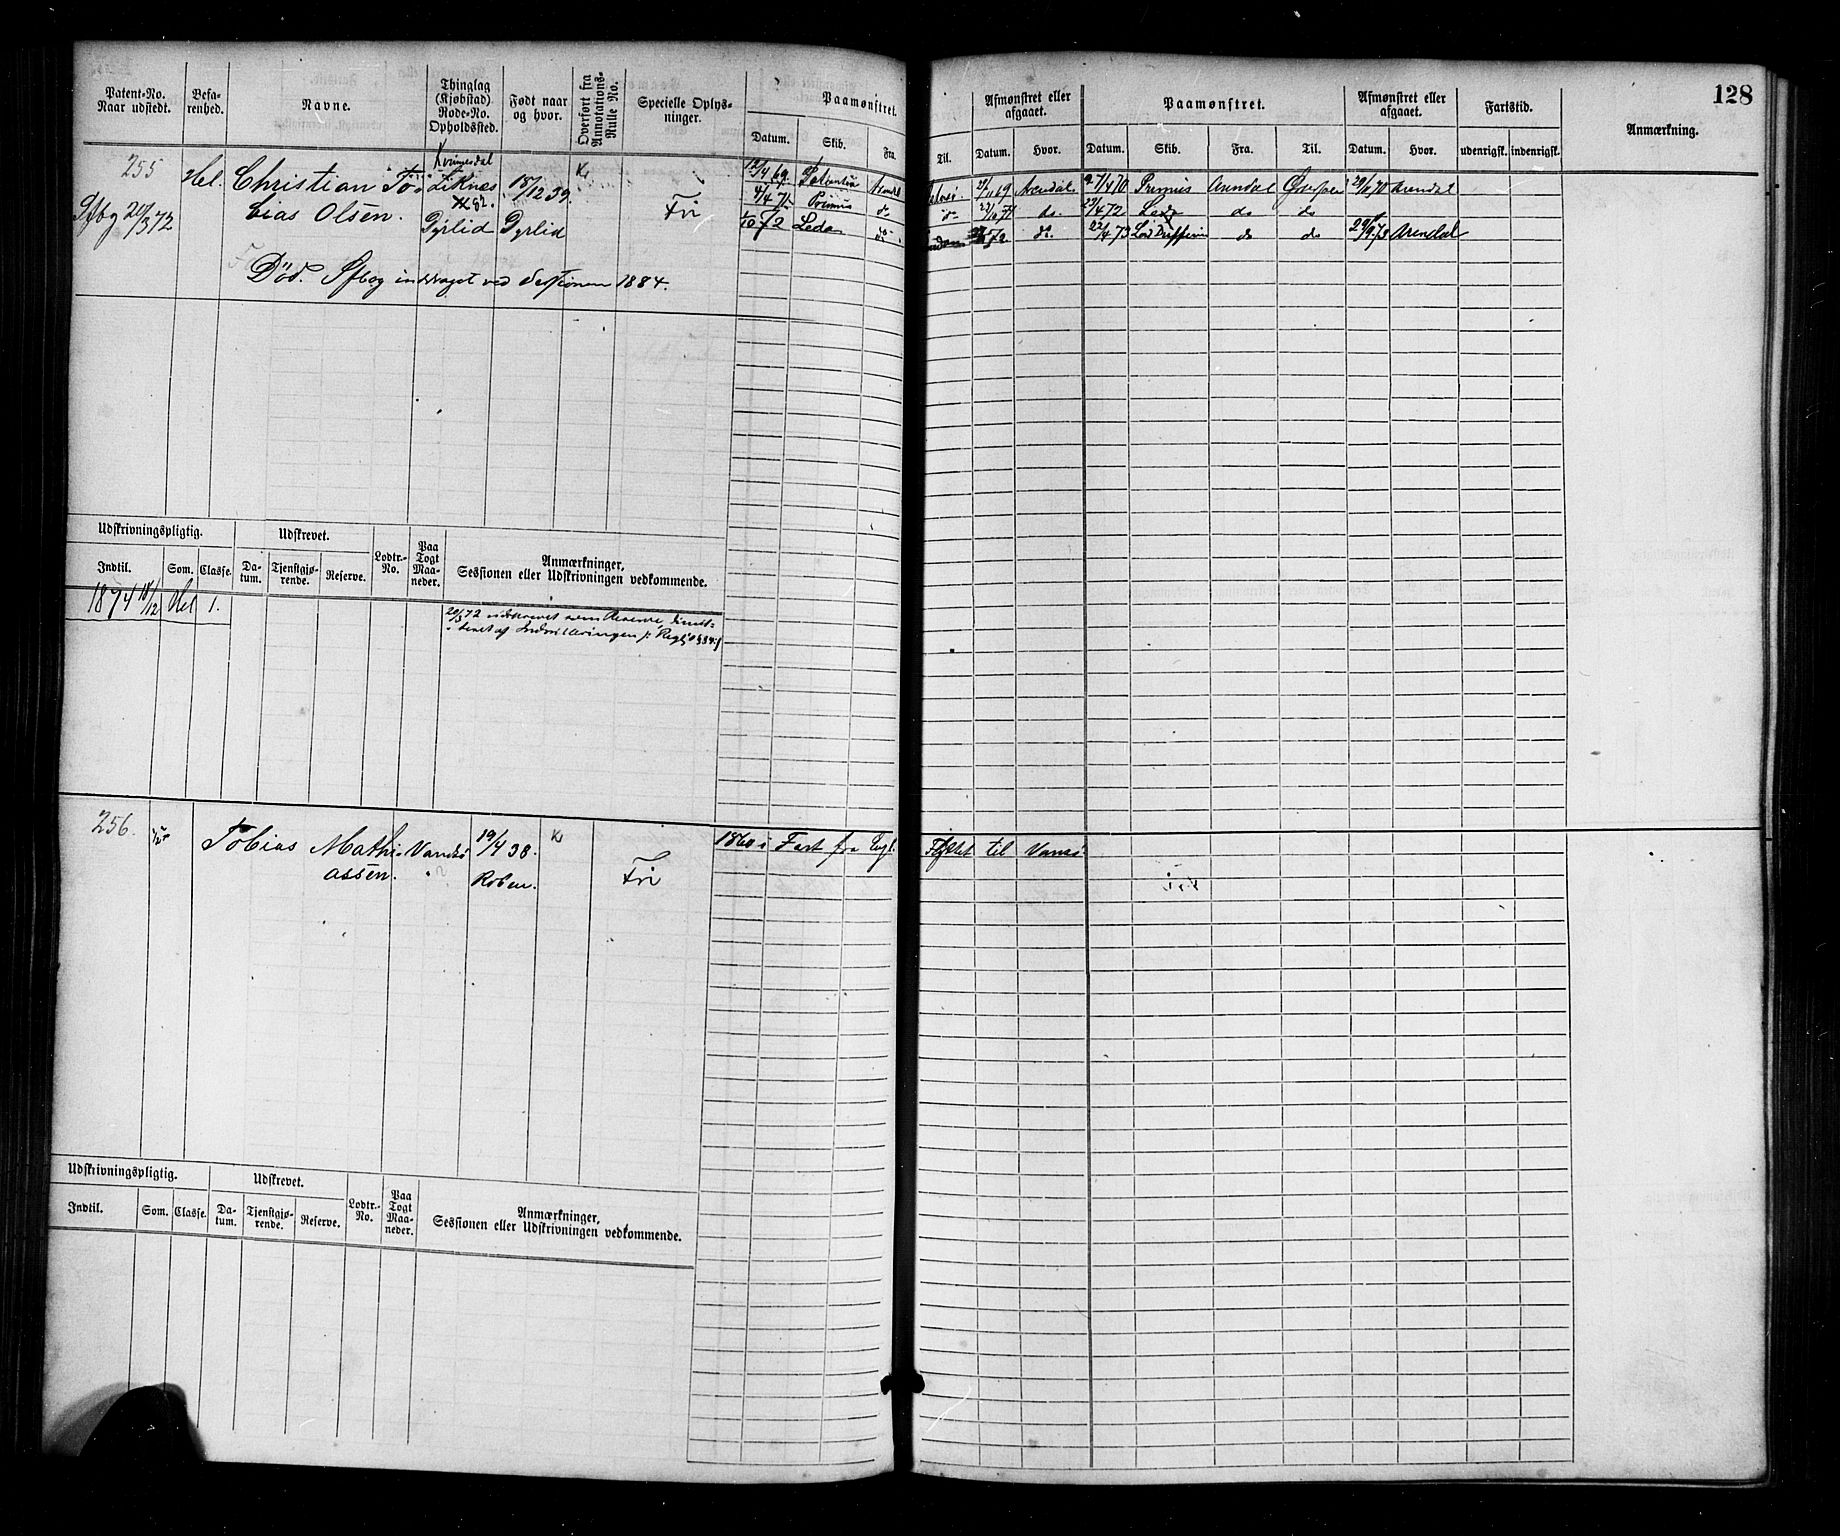 128
Patent-No.
Naar udstedt.
Befa-
renhed.
Navne.
Thinglag
(Kjøbstad)
Rode-No.
Opholdssted.
Født naar
og hvor.
Overført fra
Annotations-
Rulle No.
Specielle Oplys-
ninger.
Paamønstret.
Datum. Skib. Fra.
Til.
Afmønstret eller
afgaaet.
Datum. Hvor.
Paamønstret.
Datum. Skib. Fra. Til.
Afmønstret eller
afgaaet.
Datum. Hvor.
Fartstid.
udenrigsk. indenrigsk.
Anmærkning.
255
Sfbg 20/3 72
Hel.
Christian To
bias Olsen.
Kvinesdal
Liknes
Dyrlid
18/12 39
Dyrlid
Fri
12/4 69
4/4 71 Primus do
72 Leda do
69 Arendal 70 Primus Arendal 70 Arendal
71 do. 23/4 72 Leda do do
72 do. 22/4 73 do do 73 Arendal
Død. Sfbog inddraget ved Sessionen 1884.
Udskrivningspligtig.
Indtil. Som. Classe.
Udskrevet.
Da-
tum.
Tjenstgjø-
rende.
Reserve.
Lodtr.-
No.
Paa
Togt
Maa-
neder.
Anmærkninger,
Sessionen eller Udskrivningen vedkommende.
1874 18/12 Hel 1.
20/3 72 udskrevet som Reserve,
256.
Tobias Mathi
assen.
Vansø
19/4 38.
Fri
1860 i Fart fra Engl.
Flyttet til Vansø.
Udskrivningspligtig.
Indtil. Som. Classe.
Udskrevet.
Da-
tum.
Tjenstgjø-
rende.
Reserve.
Lodtr.-
No.
Paa
Togt
Maa-
neder.
Anmærkninger,
Sessionen eller Udskrivningen vedkommende.